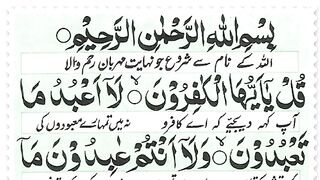 بِسْمِ اللهِ الرَّحْمٰنِ الرَّحِيْمِ ○
اللہ کے نام سے شروع جو نہایت مہربان رحم والا
قُلْ يٰۤاَيُّهَا الْكٰفِرُوْنَ ○ لَاۤ اَعْبُدُ مَا
آپ کہہ دیجئے کہ اے کافرو نہ میں تمہارے معبودوں کی
تَعْبُدُوْنَ ○ وَلَاۤ اَنْتُمْ عٰبِدُوْنَ مَاۤ